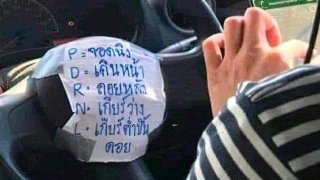 P = จอดนิ่ง
D = เดินหน้า
R = ถอยหลัง
N = เกียร์ว่าง
L = เกียร์ต่ำขึ้น
ดอย